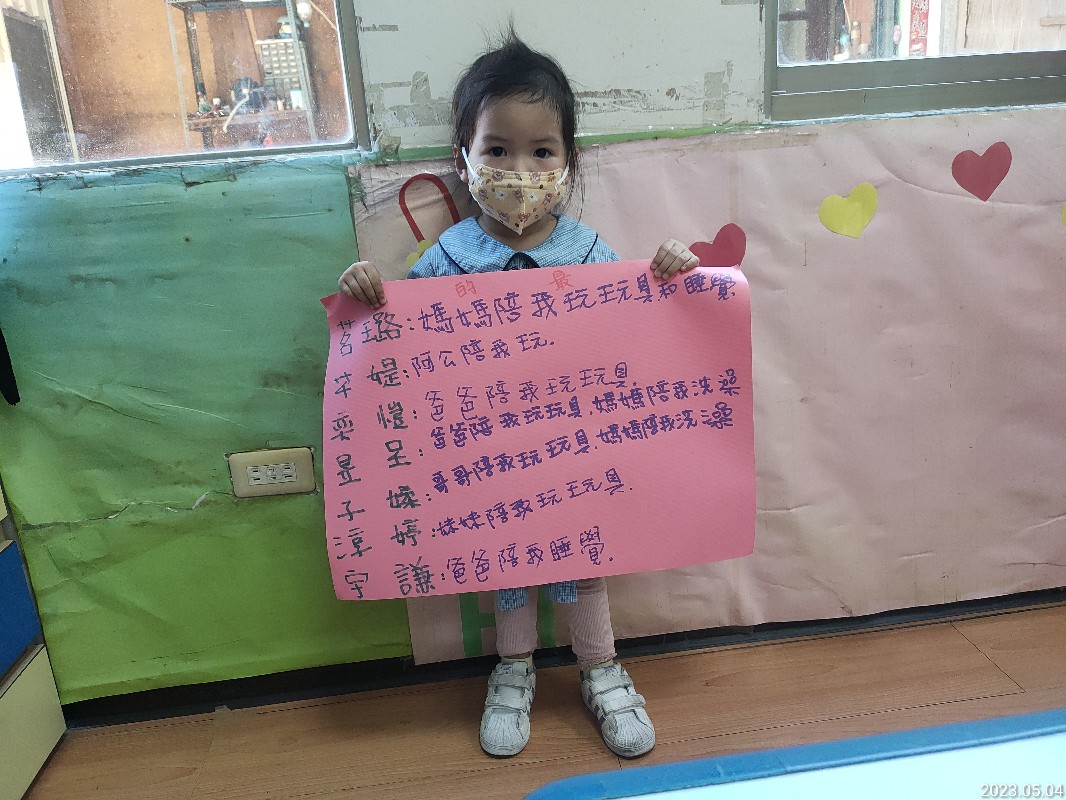 的 最
茗璐:媽媽陪我玩玩具和睡覺
媞:阿公陪我玩.
奕愷:爸爸陪我玩玩具.
昱呈:爸爸陪我玩玩具.媽媽陪我洗澡
子嫀:哥哥陪我玩玩具.媽媽陪我洗澡
淳婷:妹妹陪我玩玩具.
宇謙:爸爸陪我睡覺.
2023.05.04